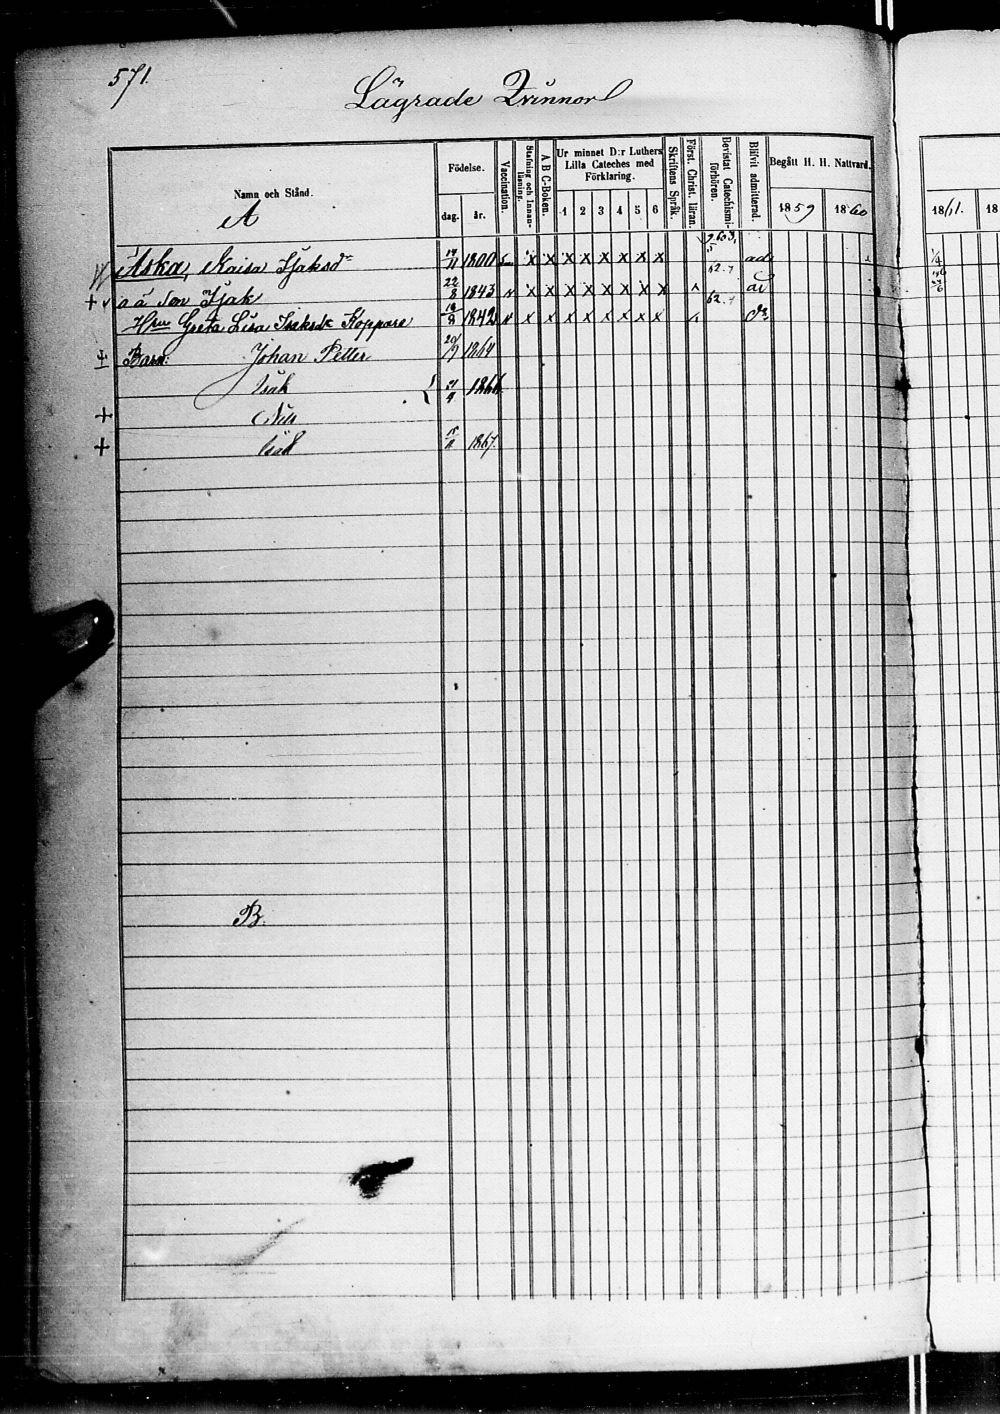 571.
Lägrade Qvinnor
Namn och Stånd.
A
Födelse.
dag. år.
Vaccination.
Stafning och Innan-läsning.
A B C-Boken.
Ur minnet D:r Luthers Lilla Cateches med Förklaring.
1 2 3 4 5 6
Skriftens Språk.
Först. Christ. läran.
Bevistat Catechismi-förhören.
Blifvit admitterad.
Begått H. H. Nattvard.
1859 1860 1861. 18
Aska, Kaisa Isaksdr 1800 x x x x x x x x ad
a ä Son Isak 22/8 1843 x x x x x x x x 62. ad
Hru Greta Lisa Isaksdr Koppare 1842 x x x x x x x x 62.
Barn: Johan Petter 20/9 1864
Isak 1866
Nils
Isak 1867.
B.